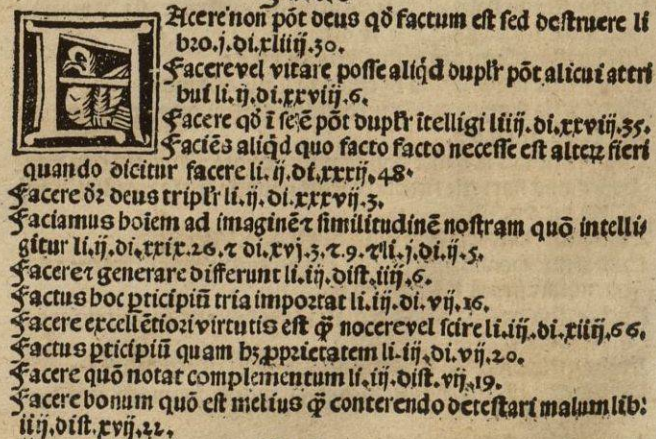 FAcere non põt deus qđ factum est sed destruere li
bro.j.di.xliiij.30.
Facere vel vitare posse aliqd duplr põt alicui attri
bui li.ij.di.xxviij.6.
Facere qđ ĩ se ẽ põt duplr ĩtelligi li iij.di.xxvij.35.
Faciẽs aliqd quo facto facto necesse est alteꝝ fieri
quando dicitur facere li.ij.di.xxxij.48.
Facere dꝛ deus triplr li.ij.di.xxxvij.3.
Faciamus hoĩem ad imaginẽ ⁊ similitudinẽ nostram quõ intelli⸗
gitur li.ij.di.xxix.26.⁊ di.xvj.3.⁊.9.⁊ li.j.di.ij.5.
Facere ⁊ generare differunt li.iij.dist.iiij.6.
Factus hoc ꝑticipiũ tria importat li.iij.di.vij.16.
Facere excellẽtiori virtutis est q̃ꝫ nocere vel scire li.iij.di.xiiij.66.
Factus ꝑticipiũ quam hꝫ ꝓprietatem li.iij.di.vij.20.
Facere quõ notat complementum li.iij.dist.vij.19.
Facere bonum quõ est melius q̃ꝫ conterendo detestari malum lib:
iiij.dist.xvij.22.